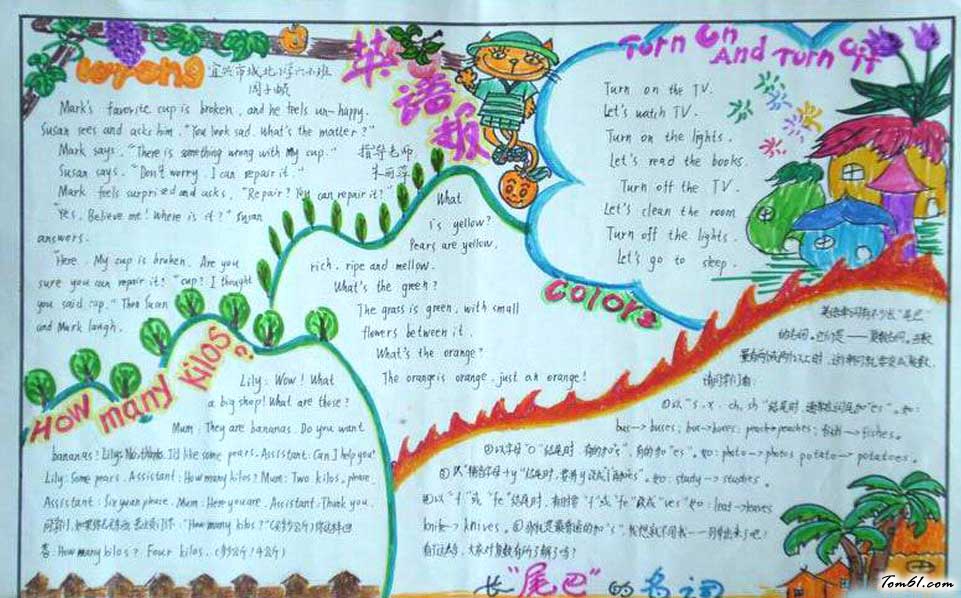 Wrong
宜兴市城北小学六五班
英语报
指导老师
Mark's favorite cup is broken, and he feels un-happy.
Susan sees and asks him. "You look sad. What's the matter?"
Mark says, "There is something wrong with my cup."
Susan says. "Don't worry, I can repair it."
Mark feels surprised and asks, "Repair? You can repair it?"
"Yes, Believe me! Where is it?" Susan
answers.
"Here. My cup is broken. Are you
sure you can repair it?" "cup? I thought
you said cap." Then Susan
and Mark laugh.
What
is yellow?
Pears are yellow,
rich, ripe and mellow.
What's the green?
The grass is green, with small
flowers between it.
What's the orange?
The orange is orange, just an orange!
colors
Turn On And Turn Off
Turn on the TV.
Let's watch TV.
Turn on the lights.
Let's read the books.
Turn off the TV.
Let's clean the room
Turn off the lights.
Let's go to sleep.
How many kilos?
Lily: Wow! What
a big shop! What are those?
Mum: They are bananas. Do you want
bananas? Lily: No, thanks. I'd like some pears. Assistant: Can I help you?
Lily: Some pears. Assistant: How many kilos? Mum: Two kilos, please.
Assistant: Six yuan please. Mum: Here you are. Assistant: Thank you.
"How many kilos?"
答: How many kilos? Four kilos. (多少公斤/4公斤)
英语单词有不少长"尾巴"
的名词。
①以"s, x, ch, sh"结尾时 "es". 如:
bus→buses; box→boxes; peach→peaches; →fishes.
②以字母"o"结尾时 有的加"s", 有的加"es". 如: photo→photos potato→potatoes.
③以"辅音字母+y"结尾时, 如: study→studies.
④以"f"或"fe"结尾时, 有时将"f"或"fe"改成"ves" 如: leaf→leaves
knife→knives.
长"尾巴"的名词
Tom61.com